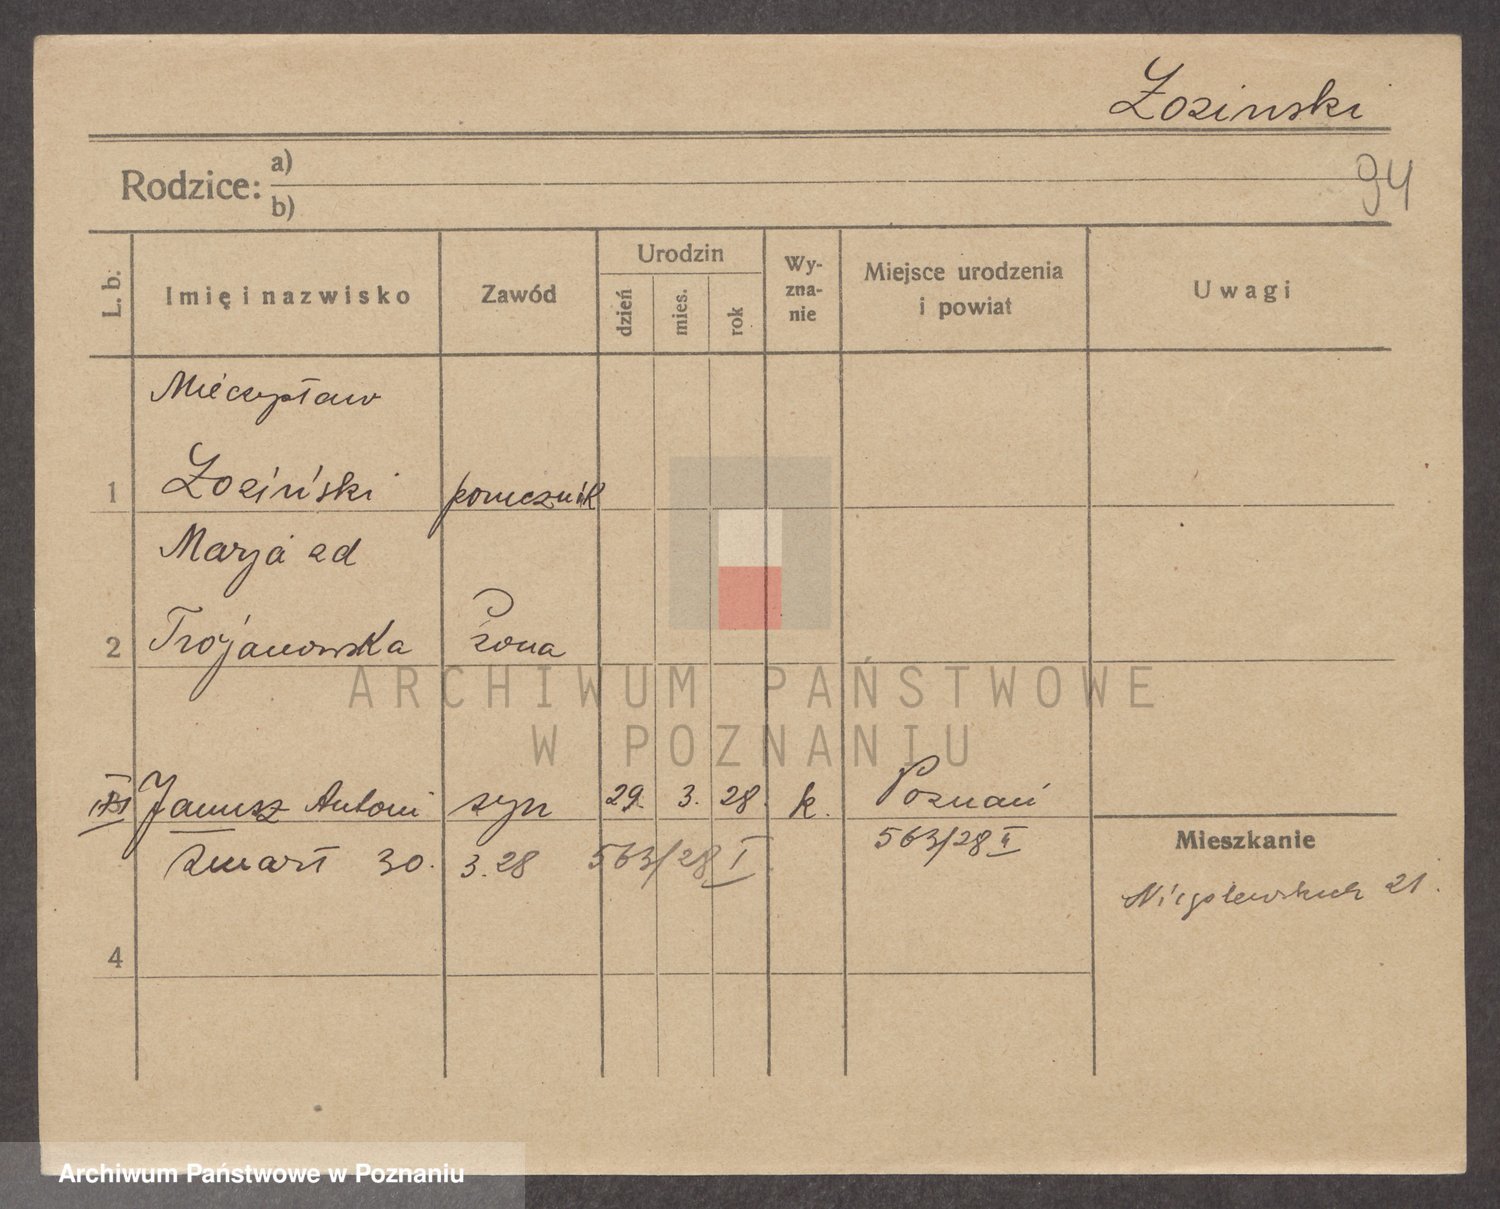 Łozinski
94
Rodzice: a)
b)
L. b. Imię i nazwisko Zawód Urodzin dzień mies. rok Wy-zna-nie Miejsce urodzenia i powiat Uwagi
Mieczysław
1 Łoziński porucznik
Marja zd
2 Trojanowska żona
Janusz Antoni syn 29. 3. 28. k. Poznań
zmarł 30. 3. 28 563/28 I 563/28 II
Mieszkanie
Niegolewskich 21.
4
ARCHIWUM PAŃSTWOWE
W POZNANIU
Archiwum Państwowe w Poznaniu